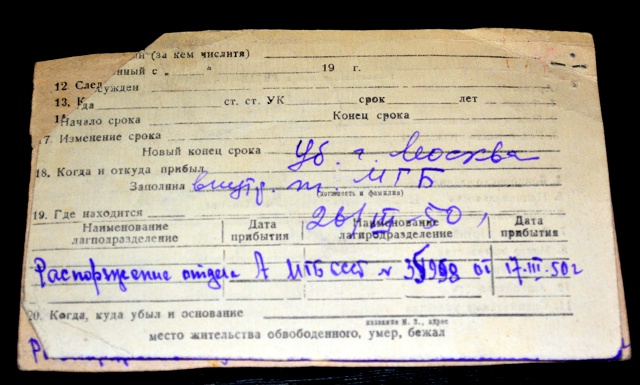 (за кем числитя)
нный с " " 19 г.
12 След
сужден
13. К гда ст. ст. УК срок лет
14
Начало срока Конец срока
17. Изменение срока
Новый конец срока
Уб. г. Москва
18. Когда и откуда прибыл
внутр. т. МГБ
Заполнила
(должность и фамилия)
26/III-50,
19. Где находится
Наименование лагподразделение Дата прибытия Наименование лагподразделение Дата прибытия
Распоряжение отдела А МГБ СССР № от 17-III-50г
20. Когда, куда убыл и основание
название М. З., адрес
место жительства обвободенного, умер, бежал